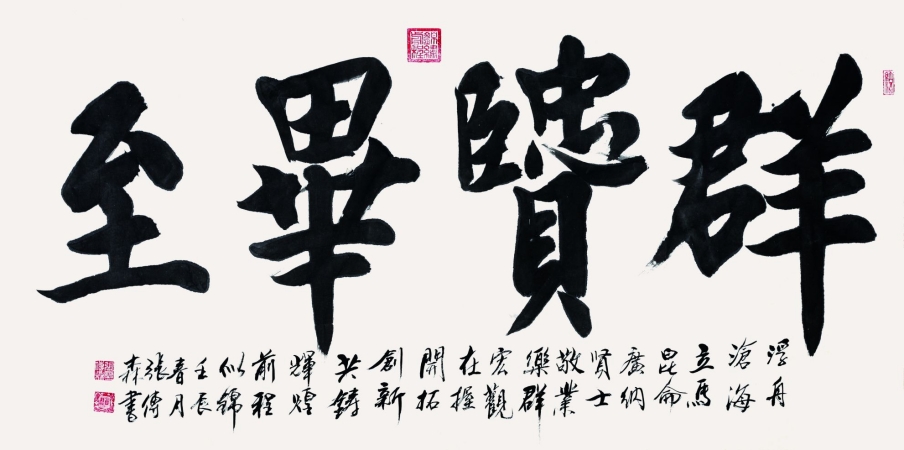 群賢畢至
浮舟
滄海
立馬
昆侖
廣納
賢士
敬業
樂群
宏觀
在握
開拓
創新
共鑄
輝煌
前程
似錦
壬辰
春月
張傳
森書